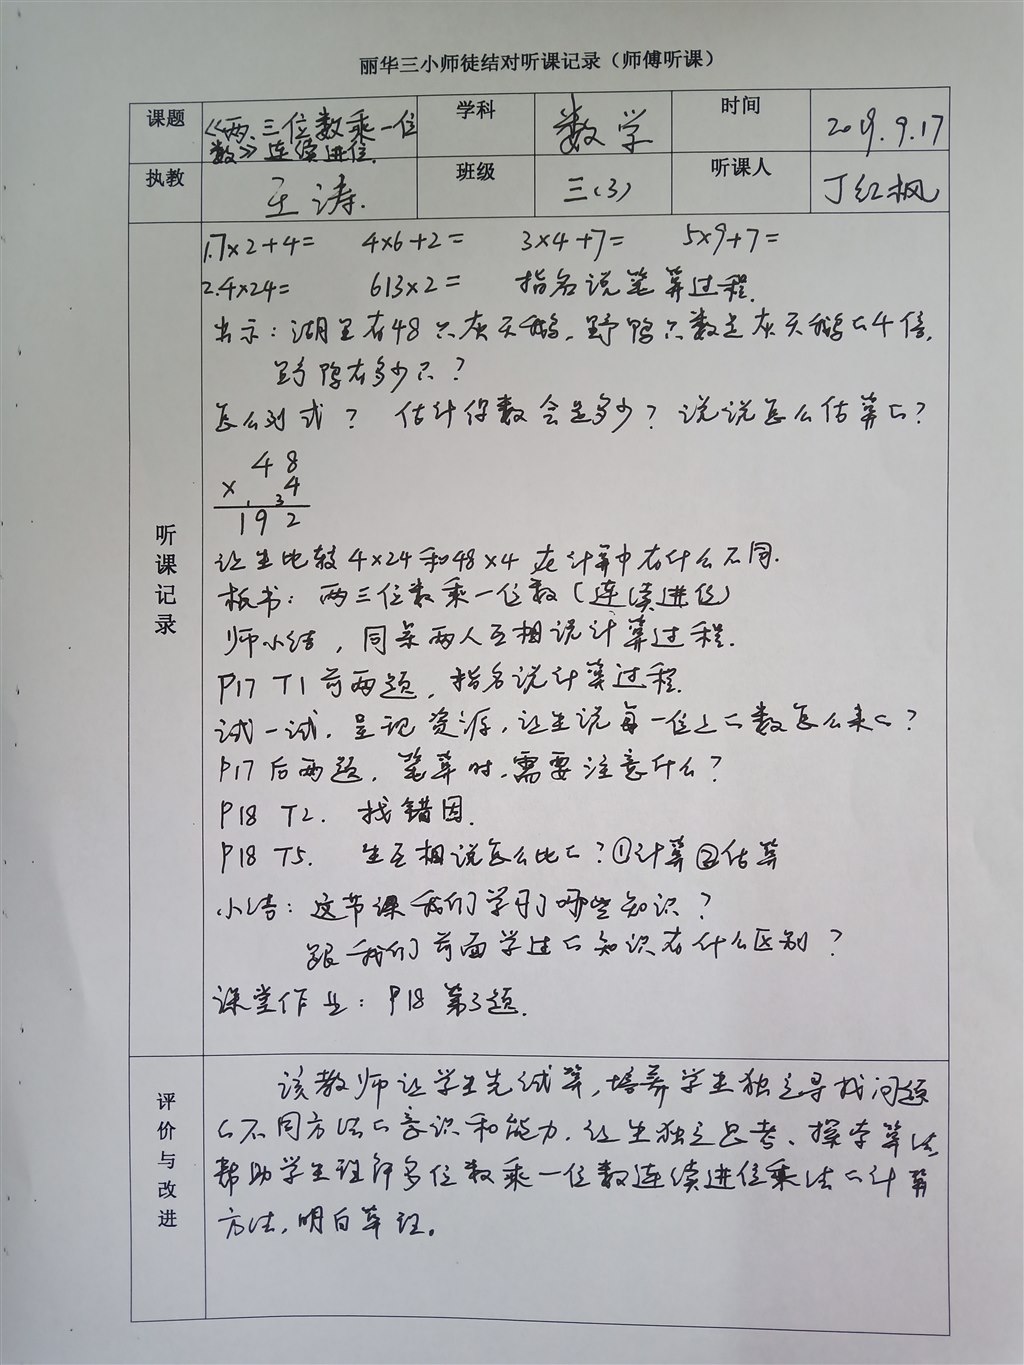 丽华三小师徒结对听课记录（师傅听课）
课题
《两、三位数乘一位
数》连续进位.
学科
数学
时间
2019.9.17
执教
王涛.
班级
三(3)
听课人
丁红枫
听课记录
1.7×2+4= 4×6+2= 3×4+7= 5×9+7=
2.4×24= 613×2= 指名说笔算过程.
出示：湖里有48只灰天鹅，野鸭只数是灰天鹅的4倍，
野鸭有多少只？
怎么列式？ 估计得数会是多少？说说怎么估算的？
48
× 4
1 3
192
让生比较4×24和48×4在计算中有什么不同.
板书：两三位数乘一位数（连续进位）
师小结，同桌两人互相说计算过程.
P17 T1前两题，指名说计算过程.
试一试，呈现资源，让生说每一位上的数怎么来的？
P17后两题，笔算时，需要注意什么？
P18 T2. 找错因.
P18 T5. 生互相说怎么比的？①计算②估算
小结：这节课我们学习了哪些知识？
跟我们前面学过的知识有什么区别？
课堂作业：P18 第3题.
评价与改进
该教师让学生先试算，培养学生独立寻找问题
的不同方法的意识和能力，让生独立思考、探索算法，
帮助学生理解多位数乘一位数连续进位乘法的计算
方法，明白算理。